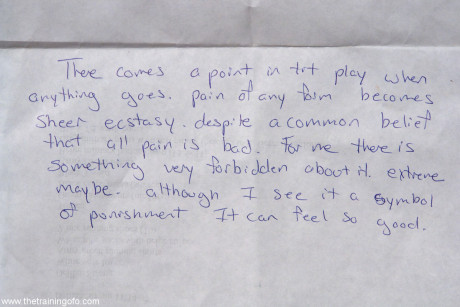 There comes a point in tit play when
anything goes. pain of any form becomes
sheer ecstasy. despite a common belief
that all pain is bad. For me there is
something very forbidden about it. extreme
maybe. although I see it a symbol
of ponishment It can feel so good.
www.thetrainingofo.com